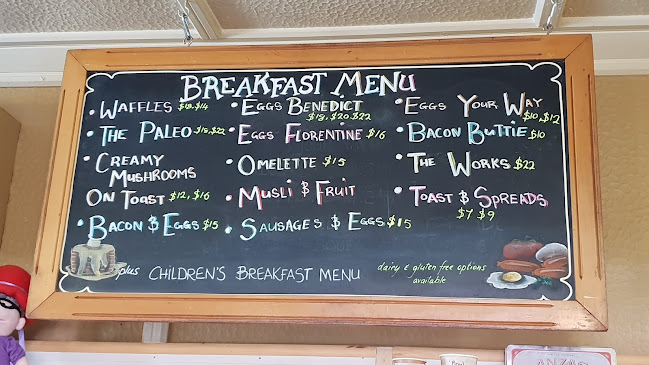 BREAKFAST MENU
• WAFFLES $14
• THE PALEO $22
• CREAMY
MUSHROOMS
ON TOAST $12, $16
• BACON & EGGS $15
• EGGS BENEDICT
$18, $20, $22
• EGGS FLORENTINE $16
• OMELETTE $15
• MUSLI & FRUIT
• SAUSAGES & EGGS $15
• EGGS YOUR WAY
$10, $12
• BACON BUTTIE $10
• THE WORKS $22
• TOAST & SPREADS
$7 $9
plus CHILDREN'S BREAKFAST MENU
dairy & gluten free options
available
ANZAC